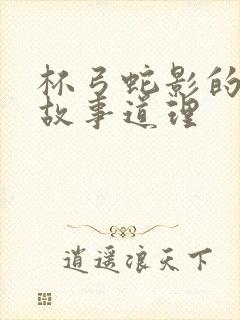 杯弓蛇影的
故事道理
逍遥浪天下